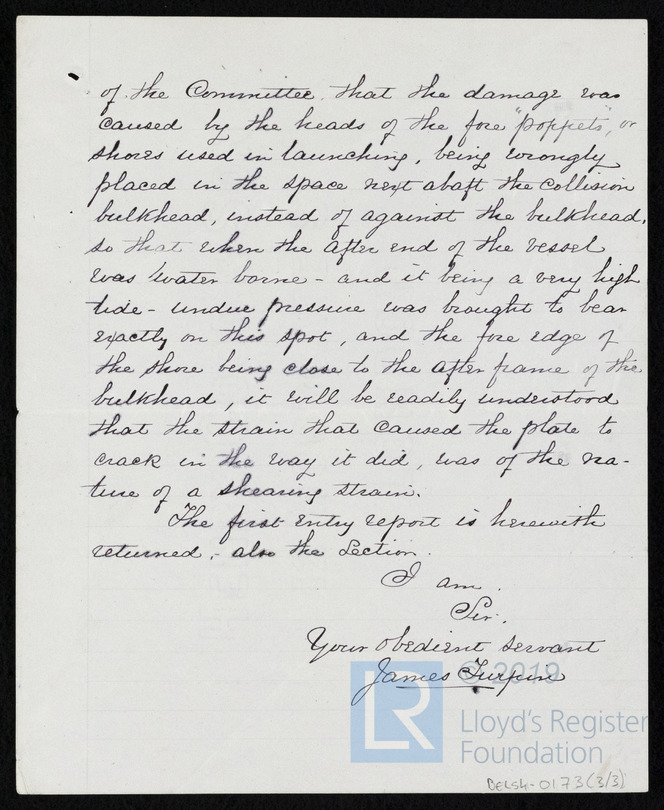 of the Committee that the damage was
caused by the heads of the fore "poppets", or
shores used in launching, being wrongly
placed in the space next abaft the Collision
bulkhead, instead of against the bulkhead,
so that when the after end of the vessel
was water borne - and it being a very high
tide - undue pressure was brought to bear
exactly on this spot, and the fore edge of
the shore being close to the after frame of the
bulkhead, it will be readily understood
that the strain that caused the plate to
crack in the way it did, was of the na-
ture of a shearing strain.
The first entry report is herewith
returned, - also the Section.
I am.
Sir.
Your obedient servant
James Turpin
© 2019
LR
Lloyd's Register
Foundation
BELS4-0173(3/3)